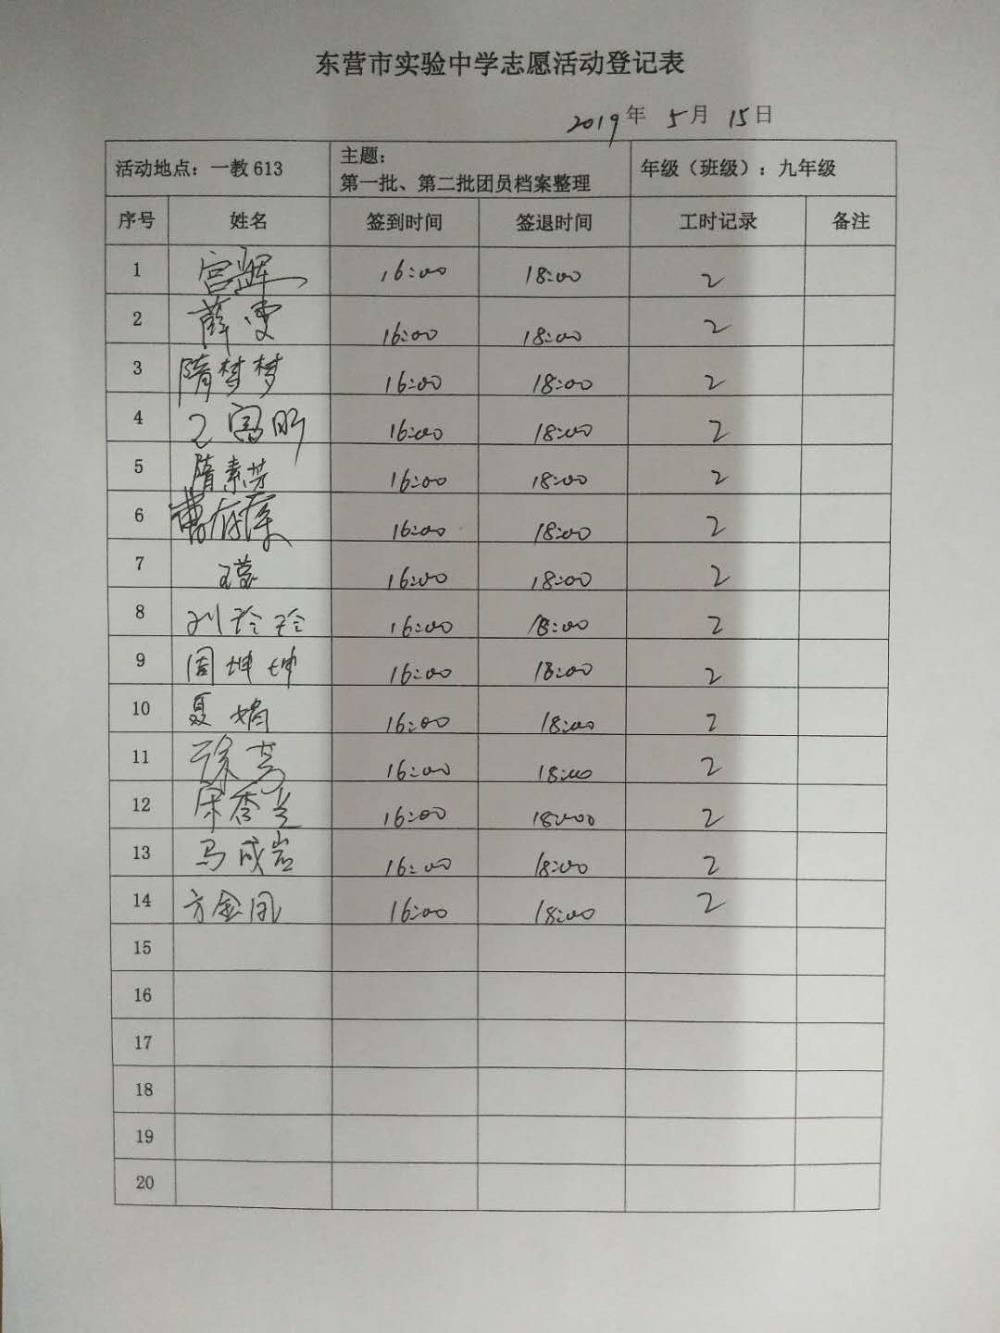 东营市实验中学志愿活动登记表
2019年 5月 15日
活动地点：一教 613 主题：第一批、第二批团员档案整理 年级（班级）：九年级
序号 姓名 签到时间 签退时间 工时记录 备注
1 宫辉 16:00 18:00 2
2 薛雯 16:00 18:00 2
3 隋梦梦 16:00 18:00 2
4 16:00 18:00 2
5 隋素芳 16:00 18:00 2
6 曹 16:00 18:00 2
7 16:00 18:00 2
8 刘玲玲 16:00 18:00 2
9 周坤坤 16:00 18:00 2
10 聂娟 16:00 18:00 2
11 徐 16:00 18:00 2
12 宋香兰 16:00 18:00 2
13 马成岩 16:00 18:00 2
14 方金凤 16:00 18:00 2
15
16
17
18
19
20